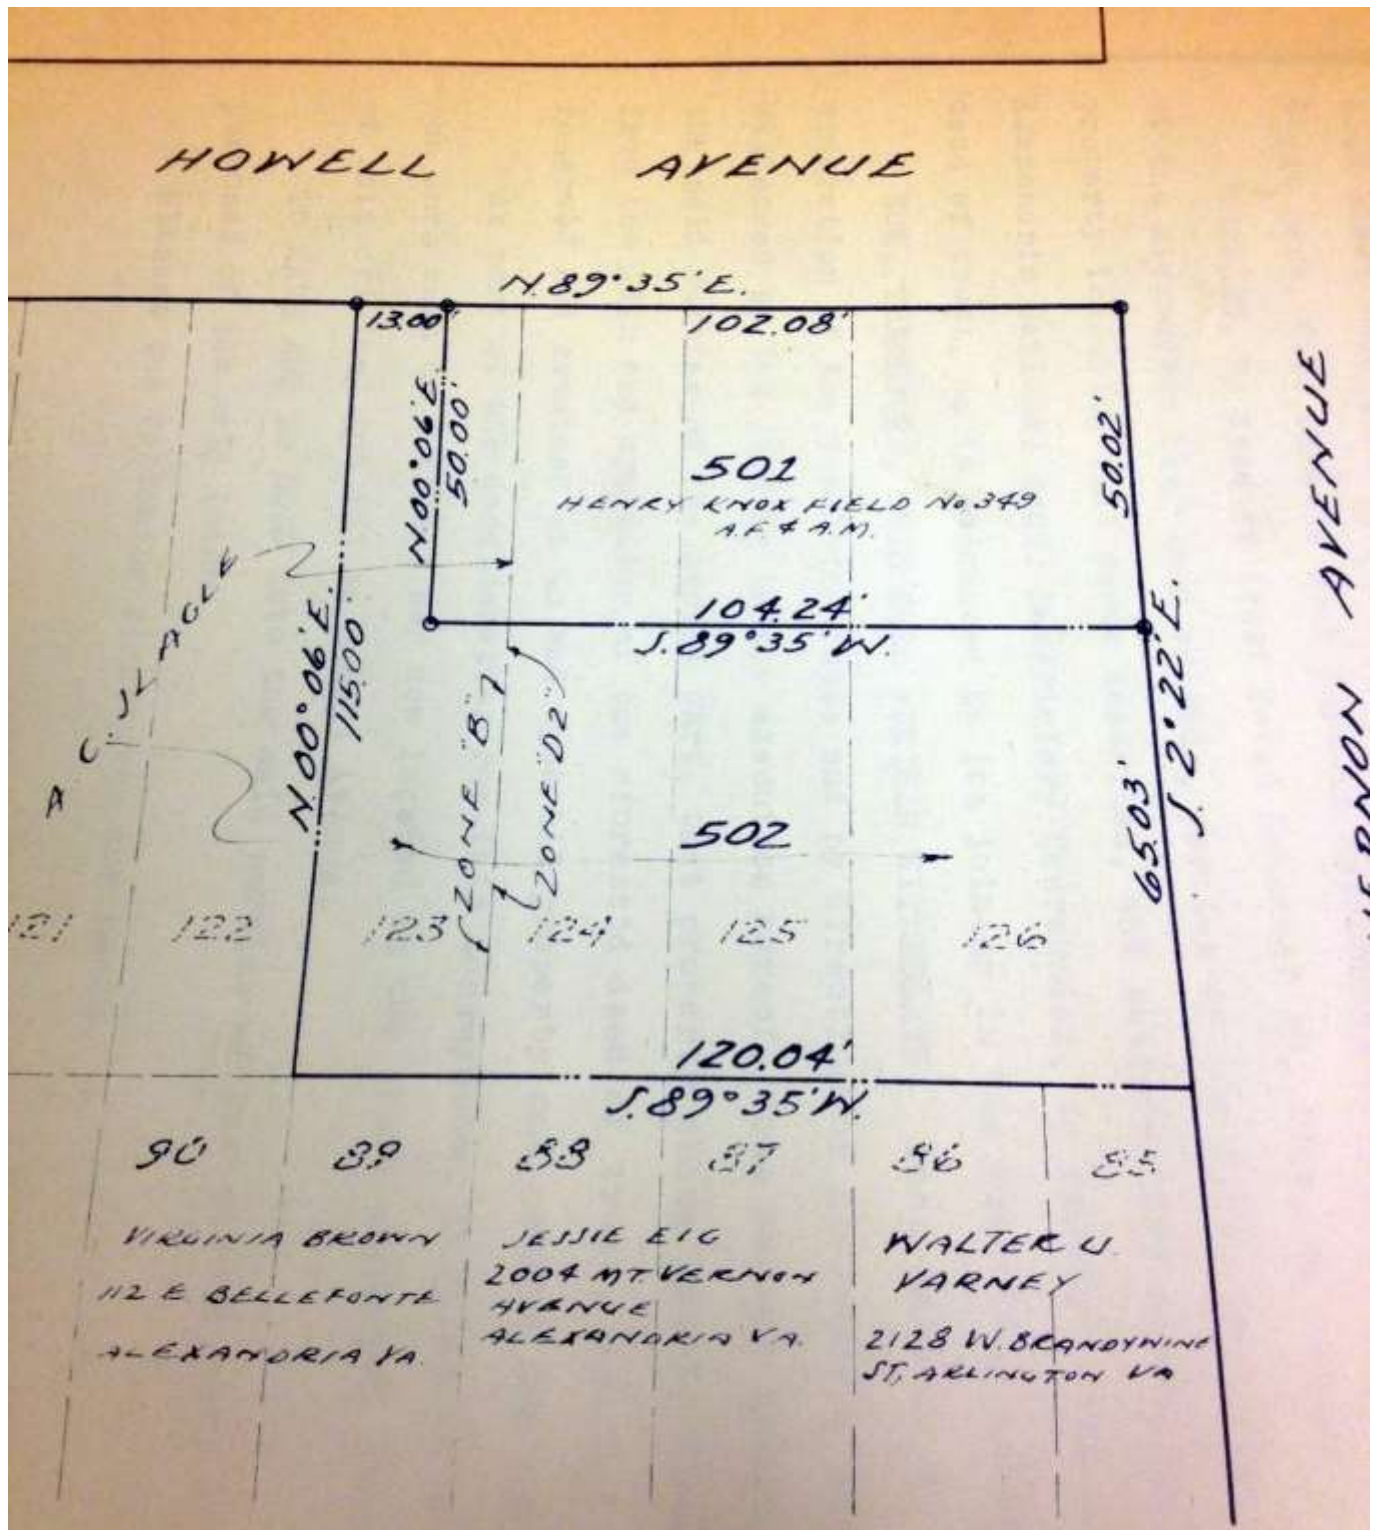 HOWELL AVENUE
N.89°35'E.
13.00'
102.08'
N.00°06'E.
50.00'
50.02'
501
HENRY KNOX FIELD No.349
A.F. & A.M.
104.24'
S.89°35'W.
N.00°06'E.
115.00'
ZONE "B"
ZONE "D2"
502
65.03'
S.2°22'E.
AVENUE
121 122 123 124 125 126
120.04'
S.89°35'W.
90 89 88 87 86 85
VIRGINIA BROWN
112 E BELLEFONTE
ALEXANDRIA VA.
JESSIE EIG
2004 MT. VERNON
AVENUE
ALEXANDRIA VA.
WALTER U.
VARNEY
2128 W. BRANDYWINE
ST, ARLINGTON VA